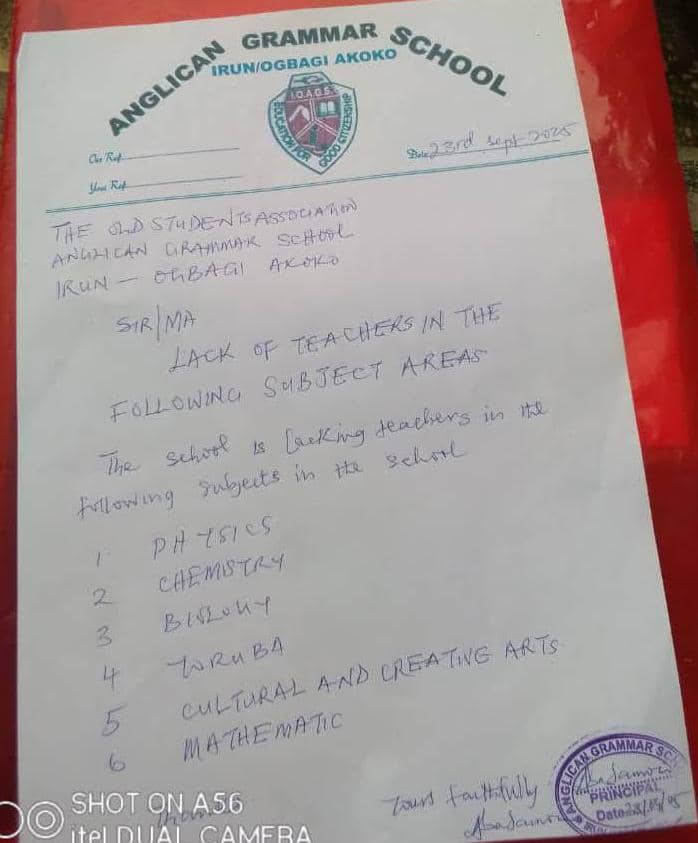 ANGLICAN GRAMMAR SCHOOL
IRUN/OGBAGI AKOKO
I.O.A.G.S
EDUCATION FOR GOOD CITIZENSHIP
Our Ref
Date 23rd Sept 2025
Your Ref
THE OLD STUDENTS ASSOCIATION
ANGLICAN GRAMMAR SCHOOL
IRUN - OGBAGI AKOKO
SIR/MA
LACK OF TEACHERS IN THE
FOLLOWING SUBJECT AREAS
The school is lacking teachers in the
following subjects in the school
1. PHYSICS
2 CHEMISTRY
3 BIOLOGY
4 YORUBA
5 CULTURAL AND CREATIVE ARTS
6 MATHEMATIC
Yours Faithfully
ANGLICAN GRAMMAR SC
PRINCIPAL
Date
SHOT ON A56
itel DUAL CAMERA